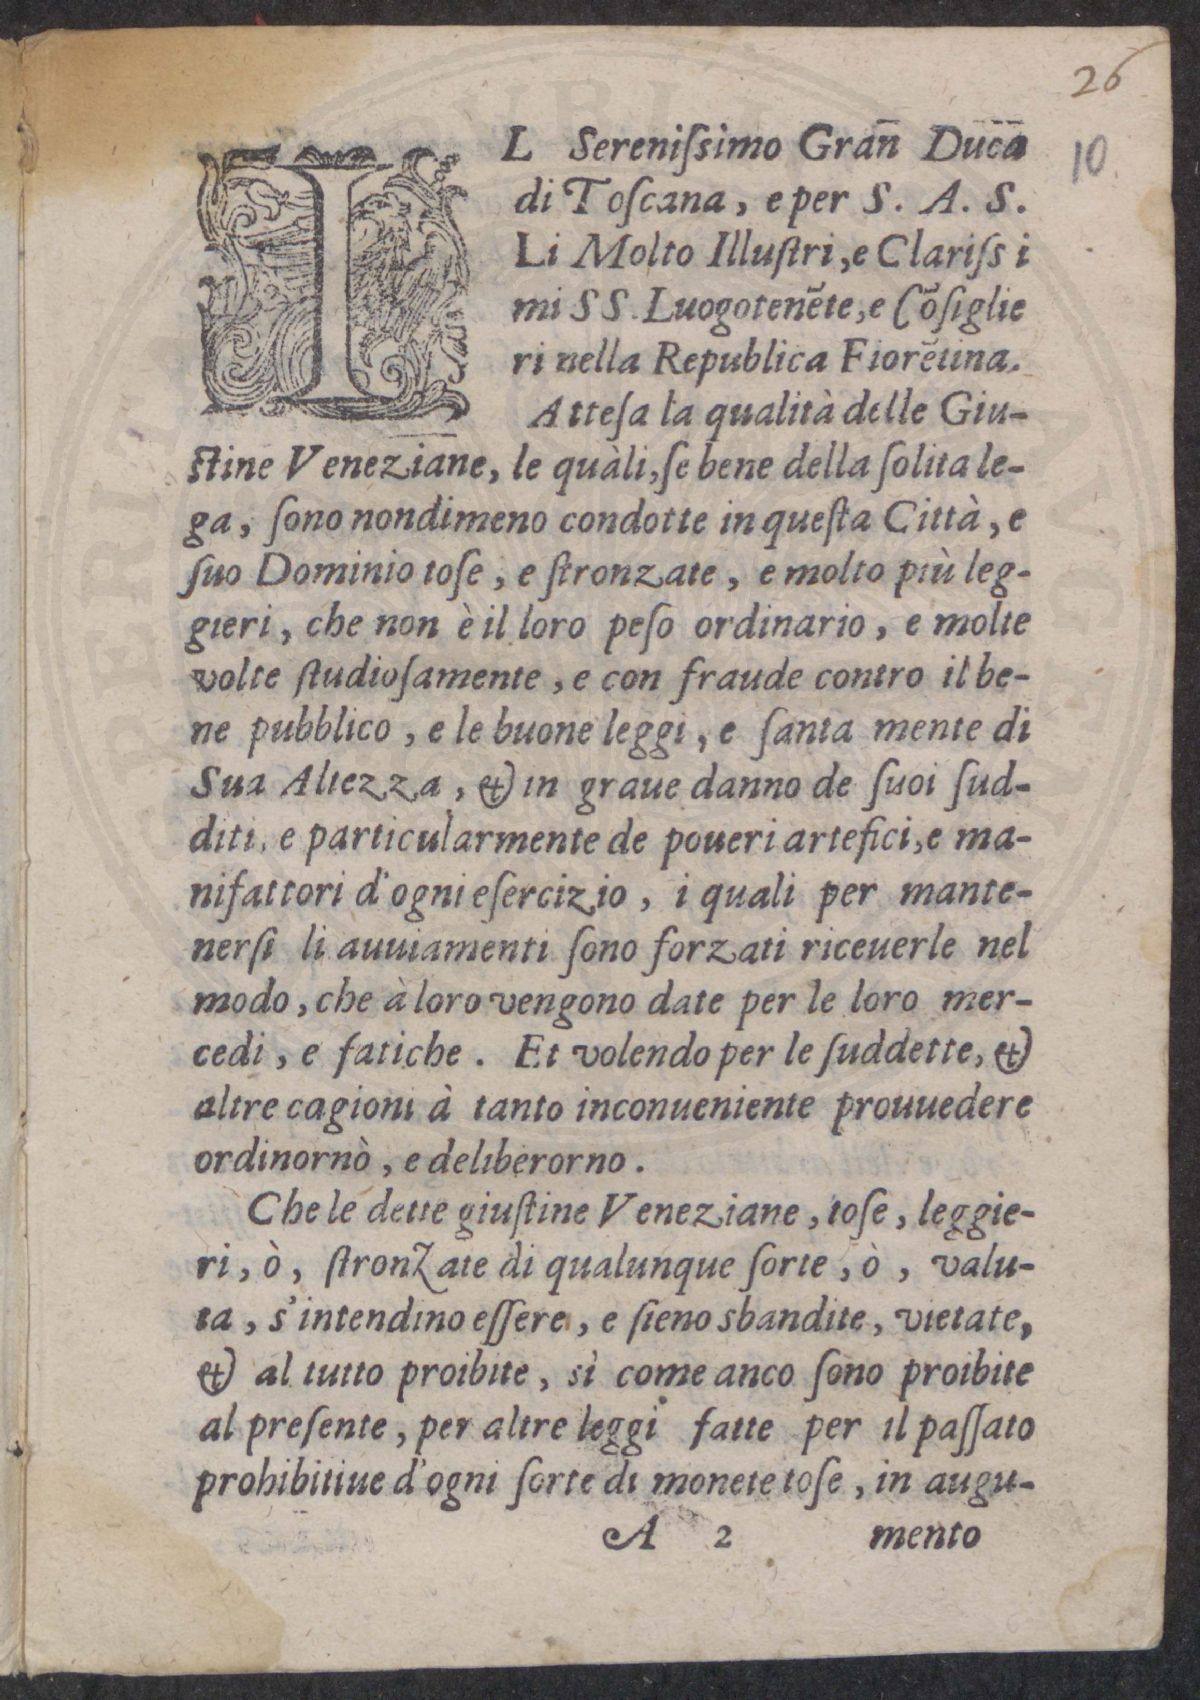 26
10
IL Sereniſsimo Gran̄ Duc̄a
di Toſcana, e per S. A. S.
Li Molto Illuſtri, e Clariſs i
mi SS. Luogotenẽte, e Cõſiglie
ri nella Republica Fiorẽtina.
Atteſa la qualità delle Giu-
ſtine Veneziane, le quàli, ſe bene della ſolita le-
ga, ſono nondimeno condotte in queſta Città, e
ſuo Dominio toſe, e ſtronzate, e molto più leg-
gieri, che non è il loro peſo ordinario, e molte
volte ſtudioſamente, e con fraude contro il be-
ne pubblico, e le buone leggi, e ſanta mente di
Sua Altezza, & in graue danno de ſuoi ſud-
diti, e particularmente de poueri artefici, e ma-
nifattori d'ogni eſercizio, i quali per mante-
nerſi li auuiamenti ſono forzati riceuerle nel
modo, che à loro vengono date per le loro mer-
cedi, e fatiche. Et volendo per le ſuddette, &
altre cagioni à tanto inconueniente prouuedere
ordinornò, e deliberorno.
Che le dette giuſtine Veneziane, toſe, leggie-
ri, ò, ſtronzate di qualunque ſorte, ò, valu-
ta, s'intendino eſſere, e ſieno sbandite, vietate,
& al tutto proibite, sì come anco ſono proibite
al preſente, per altre leggi fatte per il paſſato
prohibitiue d'ogni ſorte di monete toſe, in augu-
A 2 mento